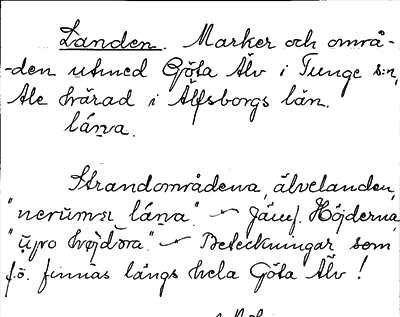 Landen. Marker och områ-
-den utmed Göta Älv i Tunge s:n,
Ale härad i Älfsborgs län.
láṉa.
Strandområdena, älvelanden,
"nerumsı láṉa." – Jämf. Höjderna,
"ụpo højdɔra." – Beteckningar som
f.ö. finnas längs hela Göta Älv!